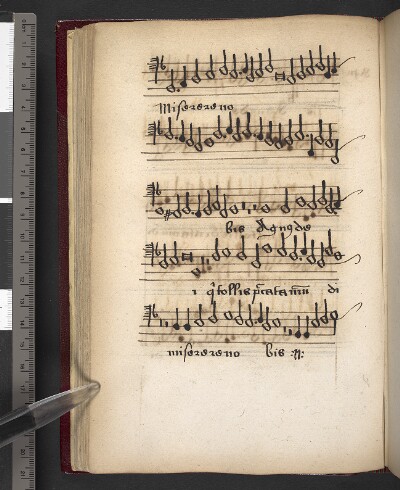 Misererero
bis Agnus de
i q tollis pccata mu di
miserereno bis :||: